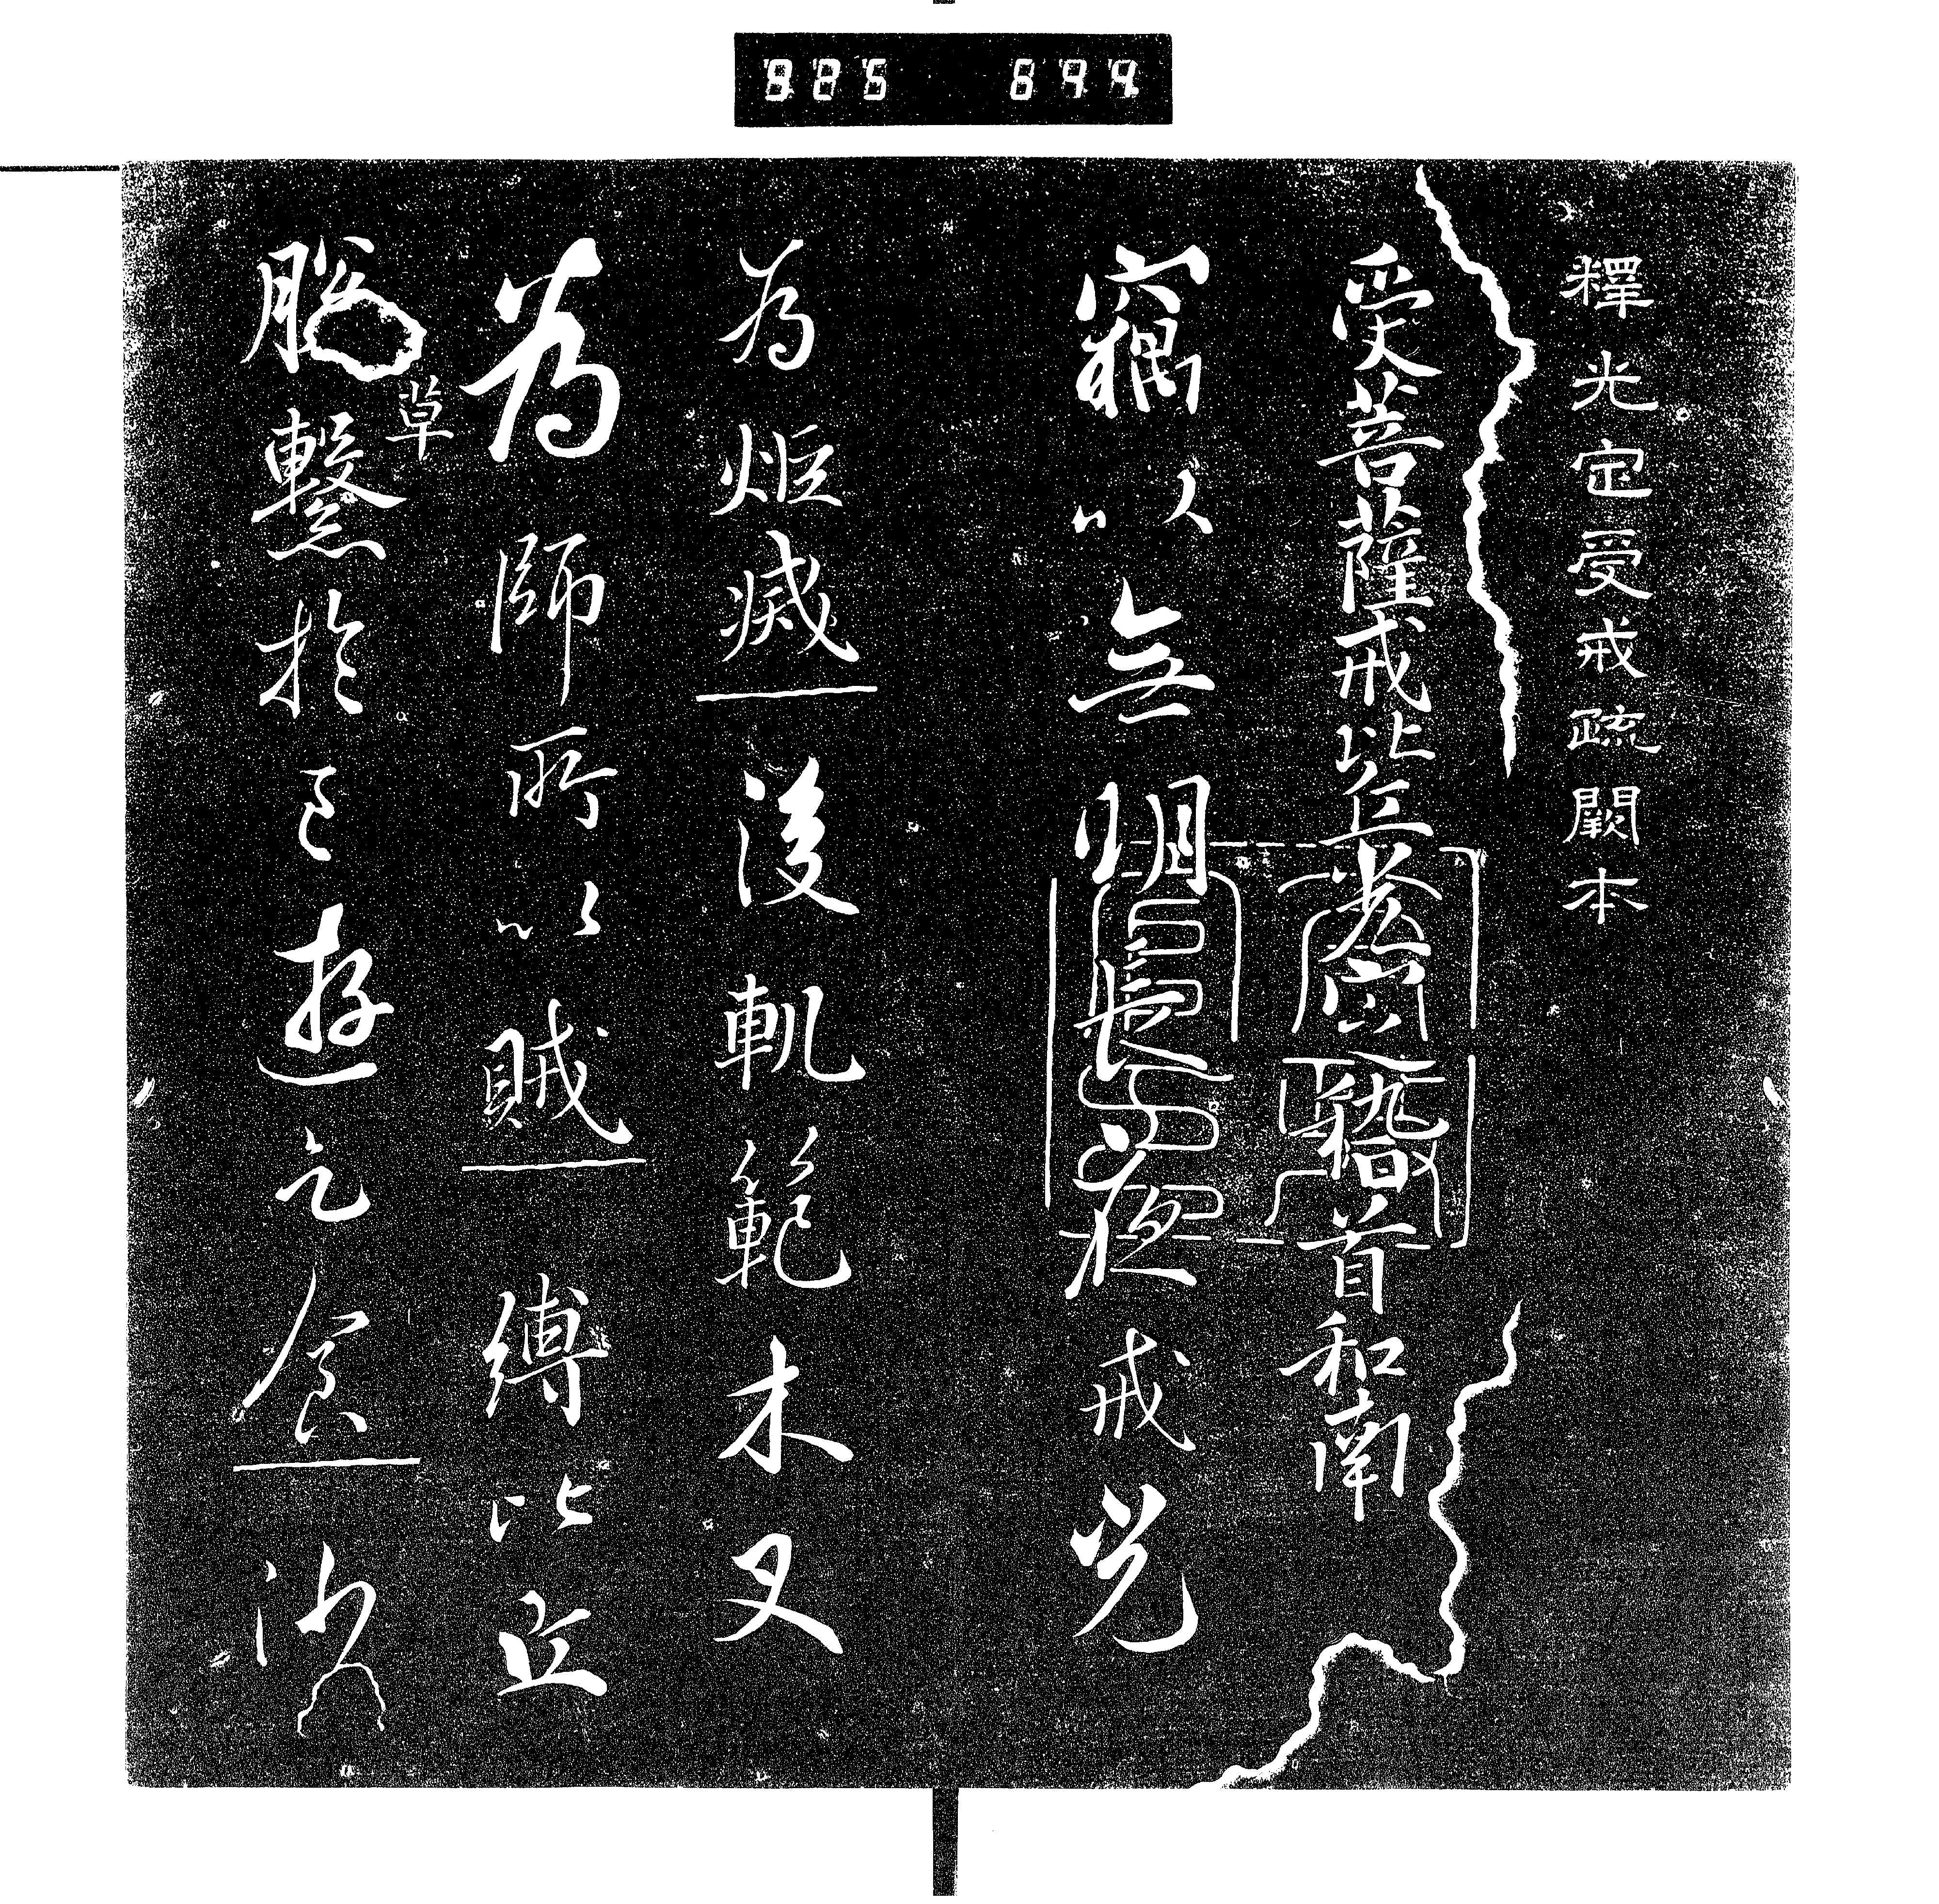 825 644
釋光定受戒疏闕本
受菩薩戒比丘光定稽首和南
竊以無明長夜戒光
為炬滅後軌範木叉
為師所以賊縛比丘
脫草繫於王遊乞食沙